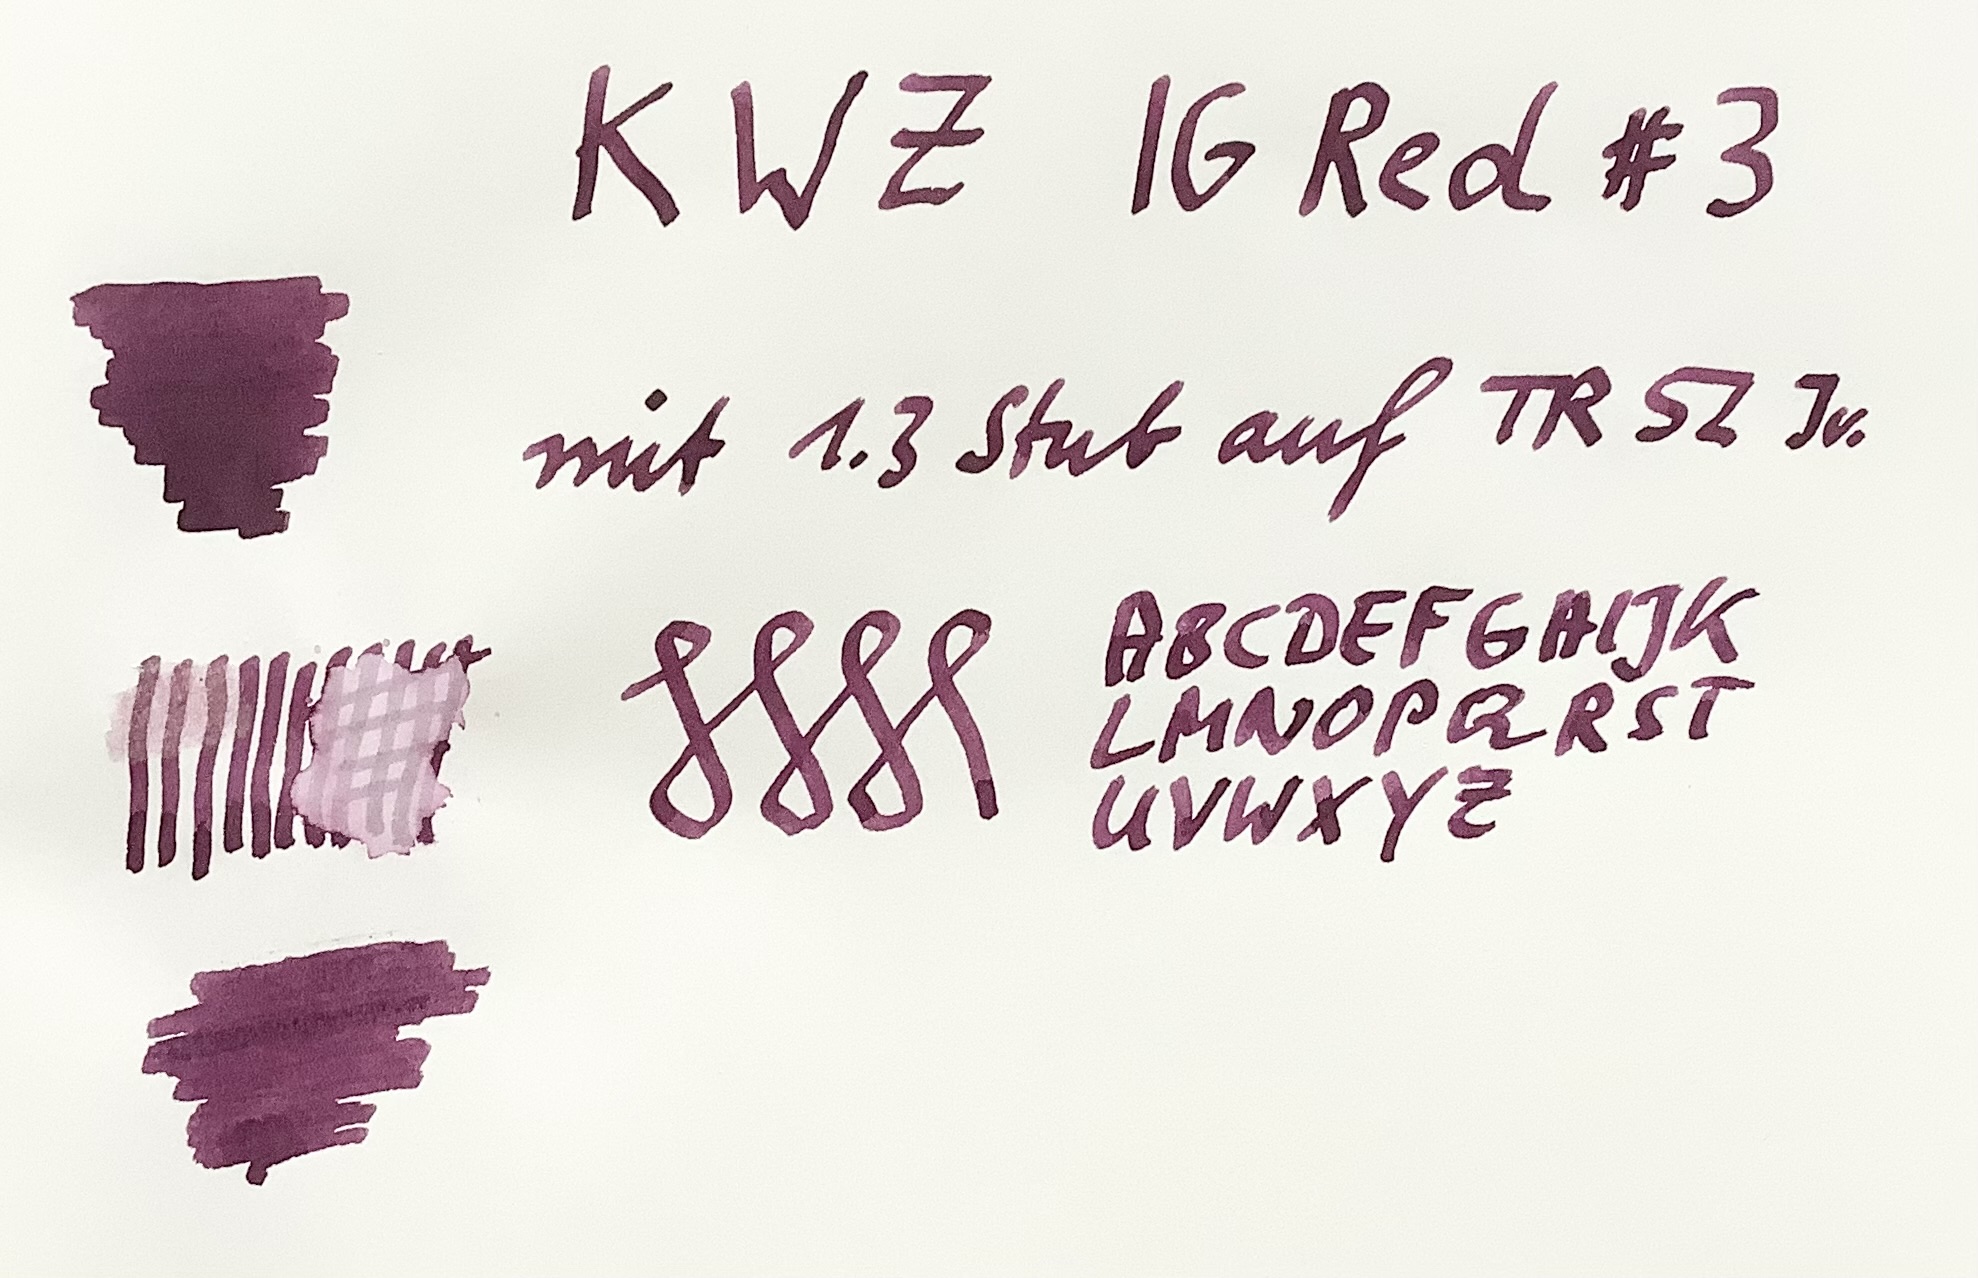 KWZ IG Red #3
mit 1.3 Stub auf TR SZ Jr.
ABCDEFGHIJK
LMNOPQRST
UVWXYZ